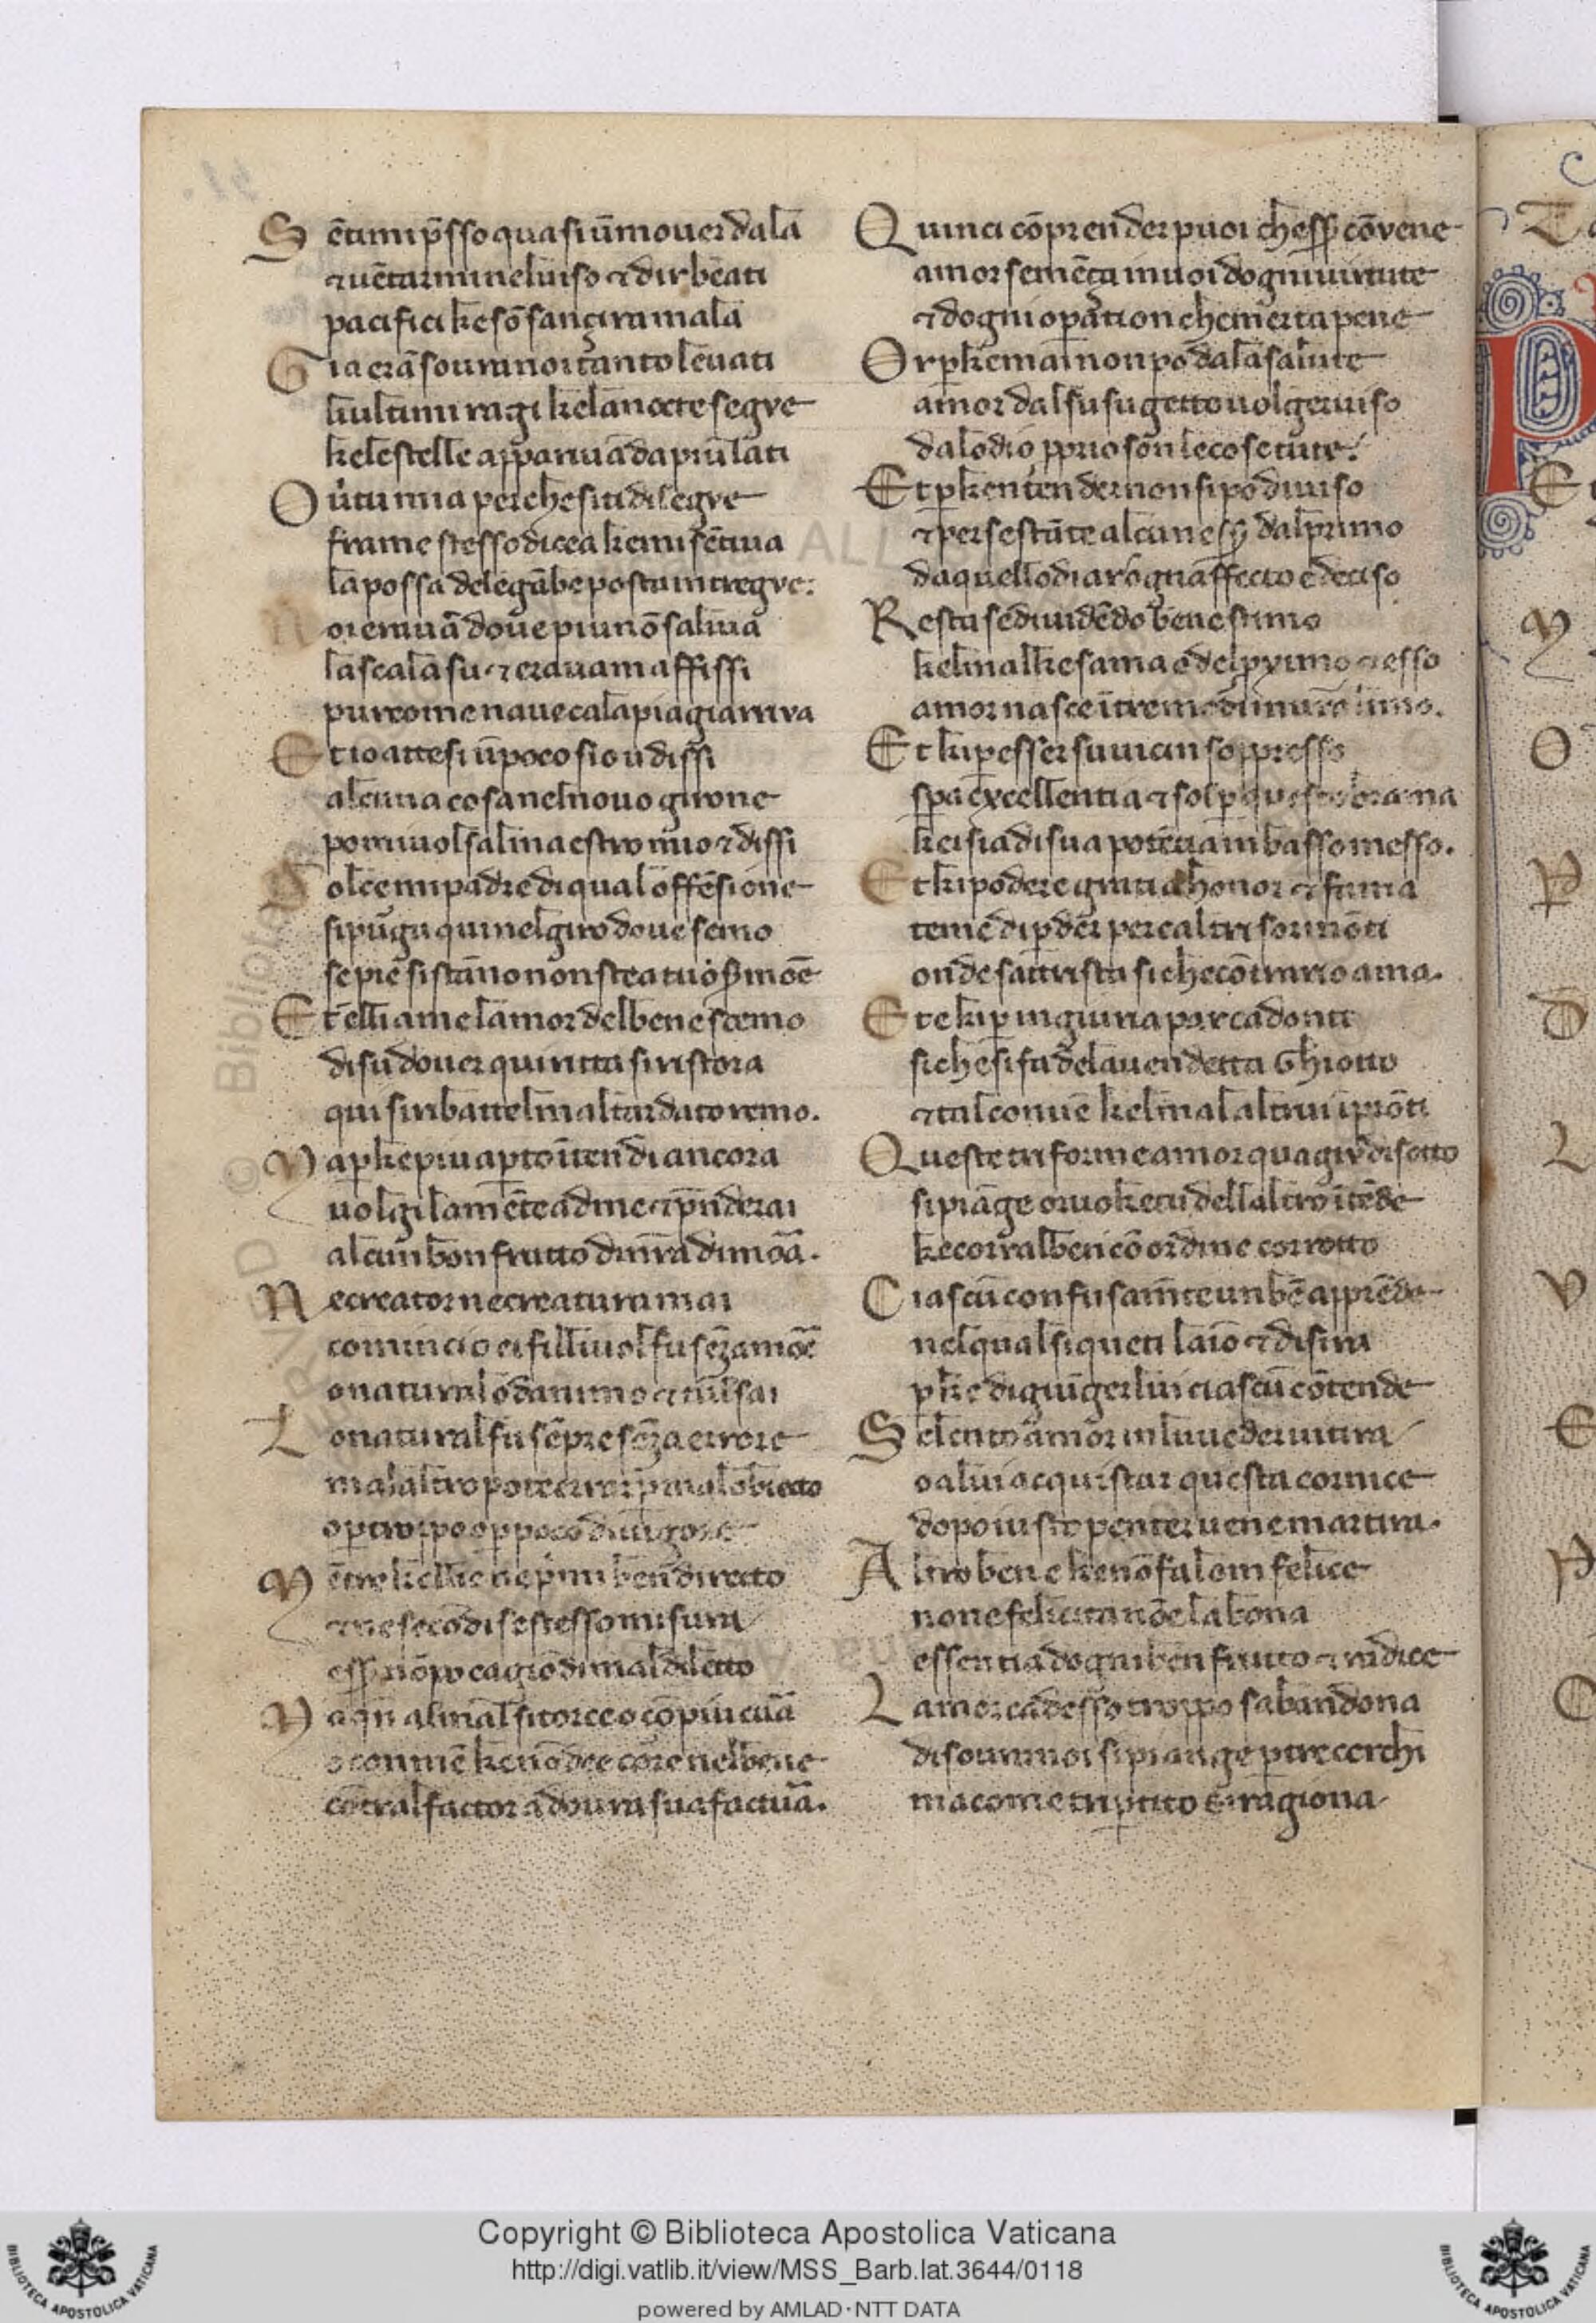 S ētimi p̄sso quasi ūmouer dala
⁊ uētarmi nel uiso ⁊ dir beati
pacifici ke sō sançira mala
G ia erā soura noi tanto leuati
li ultimi ragi ke la nocte segve
ke le stelle appariuā da piu lati
O u̇tu mia perche si ti dilegve
fra me stesso dicea ke mi sētiua
la possa de le gābe posta in tregve:
N oi erauā doue piu nō saliua
la scala su ⁊ erauam affissi
pur come naue cala piagia arriva
E t io attesi ū poco sio udissi
alcuna cosa nel nouo girone
poi mi uolsi al maestro mio ⁊ dissi
D olce mi padre di qual offēsione
si pūga qui nel giro doue semo
se pie si stānno non stea tuo s̄moē
E t elli a me lamor del bene scemo
di su douer quiritta si ristora
qui si ribatte el mal tardato remo.
M a pke piu apto ītendi ancora
uolgi la mēte ad me ⁊ p̄nderai
alcun bon frutto di n̄ra dimoā.
N e creator ne creatura mai
comincio ei filliuol fu sēza amōe
o naturale o danimo ⁊ tu il sai
L o natural fu sēpre sēza errore
ma laltro pote errar p mal obiecto
o p troppo o p poco di uigore
M ētre kelli e ne p̍mi ben directo
⁊ ne secōdi se stesso misura
essr nō po cagiō di mal diletto
M a qn al mal si torce o cō piu cuā
o con miē ke nō dee core nel bene
cōtral factor adoura sua factuā.
Q uinci cōprender puoi chessr̄ cōvene
amor semēça in uoi dogni uirtute
⁊ dogni opātion che merta pene
O r pke mai non po da la salute
amor dal su sugetto uolger uiso
da lodio pprio son le cose tute:
E t pke ntender non si po diuiso
⁊ per se stāte alcun essr̄ dal primo
da quello odiar ogni affecto e deciso
R esta se diuidēdo bene stimo
kel mal ke sama e del pximo ⁊ esso
amor nasce ī tre modi in uro limo.
E t ki p esser su uicin soppresso
spa excellentia ⁊ sol p questo brama
kei sia di sua potētia in basso messo.
E t ki podere gratia honor ⁊ fama
teme di pder per caltri sormōti
onde sattrista si che cōtrario ama.
E t e ki p ingiuria par cadonti
si che si fa de la uendetta Ghiotto
⁊ tal conuē kel mal altrui iprōti
Q uesto triforme amor qua giu disotto
si piāge or uo ke tu dellaltro ītēde
ke corr al ben cō ordine corrotto
C iascū confusamte un bē apprēde
nel qual si queti laīo ⁊ disira
p ke di giūger lui ciascū cōtende
S e lento amor in lui ueder ui tira
o a lui acquistar questa cornice
dopo iusto penter ue ne martira.
A ltro ben e ke nō fa lom felice
non e felicita nō e la bona
essentia dogni ben frutto ⁊ radice
L amor cad esso troppo sabandona
di soura noi si piange p tre cerchi
ma come tripartito si ragiona
Copyright © Biblioteca Apostolica Vaticana
http://digi.vatlib.it/view/MSS_Barb.lat.3644/0118
powered by AMLAD·NTT DATA
BIBLIOTECA APOSTOLICA VATICANA
BIBLIOTECA APOSTOLICA VATICANA